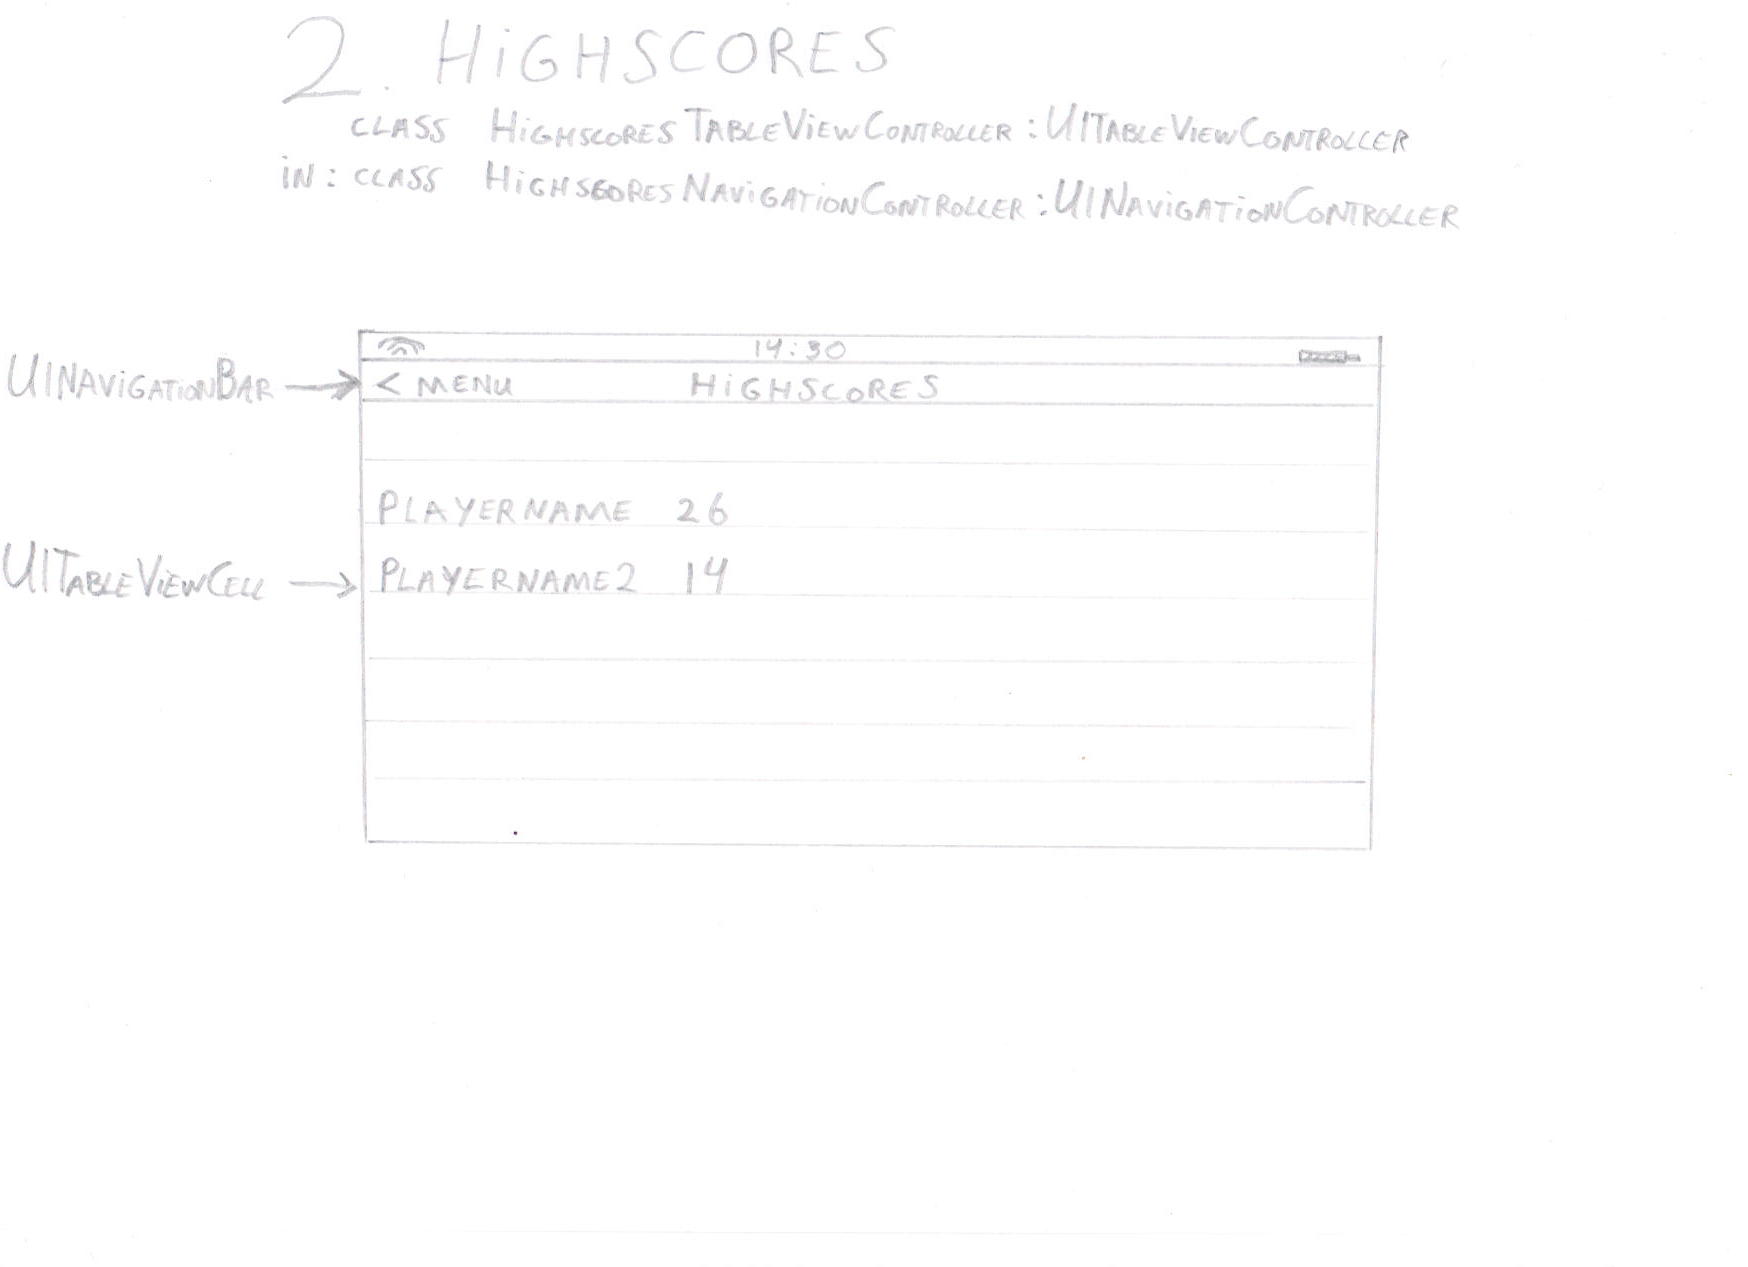 2. HIGHSCORES
CLASS HIGHSCORESTABLEVIEWCONTROLLER : UITABLEVIEWCONTROLLER
IN : CLASS HIGHSCORESNAVIGATIONCONTROLLER : UINAVIGATIONCONTROLLER
14:30
UINAVIGATIONBAR → < MENU HIGHSCORES
PLAYERNAME 26
UITABLEVIEWCELL → PLAYERNAME2 14